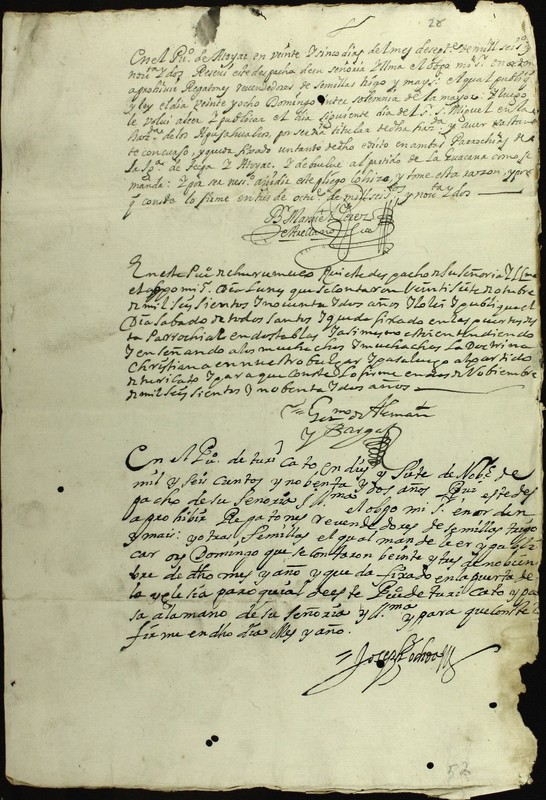 28
En el Pu.º de Atoyac en veinte y sinco dias del mes de sept.e de mill seis.os
nov.ta y dos Reseui este despacho de su señoria Yllma el obpo mi s.r en orden
a prohiuir Regatones reuendedores de semillas trigo y mays: el qual publiq.
y ley el dia veinte y ocho Domingo inter solemnia de la mayor: y luego
le volui a leer y publicar el dia siguiente dia del S.r S. Miguel en la
haz.da de los Aguacahuales, por ser dia titular de dha haz.da y auer bastan
te concurso, y queda fixado un tanto de dho edicto en ambas Parrochias de
la de Atoyac. y debuelue al partido de la Huacana como se
manda: y por ser nes.º añadir este pliego lo hize, y tome esta razon, y para
q conste lo firme en tres de octu.e de mill seis.os y nov.ta y dos
B.r Marques Perez
de Auellano
En este Pu.º de churumuco Reseui este despacho de su señoria Yllma
el obpo mi s.r Dia Lunes que se contaron veinti siete de otubre
de mil seis sientos y nouenta y dos años y lo lei y publique el
Dia sabado de todos santos y queda fixado en las puertas de es
ta Parrochial en dos tablas y asi mesmo estoi entendiendo
y enseñando a los muchachos y muchachas la Doctrina
christiana en nuestro bulgar y pasa luego al partido
de turicato y para que conste lo firme en tres de Nobiembre
de mil seis sientos y nobenta y dos años
Ger.mo de Aleman
y Barges
En el Pu.º de turicato, en dies y siete de Nob.e de
mil y seis cientos y nobenta y dos años Rez.ui este des
pacho de su señoria Yll.ma el obpo mi s.r en orden
a prohibir Regatones reuendedores de semillas trigo
y mais: y otras semillas el qual mande leer y publi
car oy Domingo que se contaron beinte y tres de nobien
bre de dho mes y año y queda fixado en la puerta de
la yglesia paroquial de este Pu.º de turicato y pa
sa a la mano de su señoria Yll.ma y para que conste lo
firme en dho dia Mes y año.
Joseph Ochoa
52